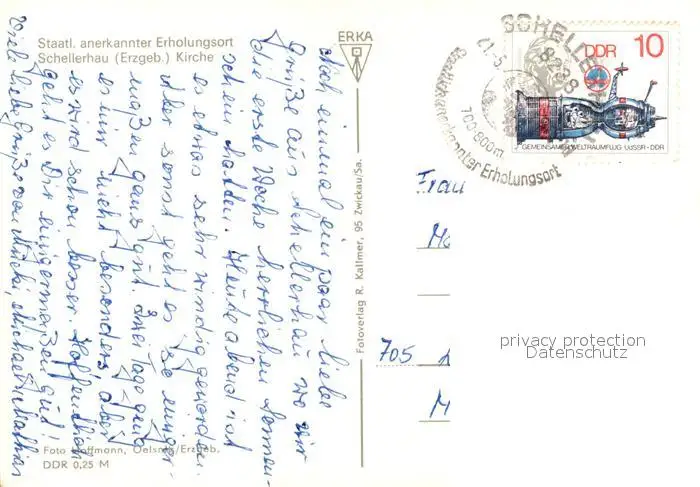 Staatl. anerkannter Erholungsort
Schellerhau (Erzgeb.) Kirche
ERKA
Noch einmal ein paar liebe
Grüße aus Schellerhau wo wir
die erste Woche herrlichen Sonnen-
schein hatten. Heute abend ist
es etwas sehr windig geworden.
Aber sonst geht es so einiger-
maßen ganz gut. Zwei Tage ging
es mir nicht besonders, aber
es wird schon besser. Hoffentlich
geht es Dir einigermaßen gut!
Viele liebe Grüße von Michael
Foto Hoffmann, Oelsnitz/Erzgeb.
DDR 0,25 M
Fotoverlag R. Kallmer, 95 Zwickau/Sa.
SCHELLERHAU
8238
21.5
700-800m
Staatlich anerkannter Erholungsort
DDR 10
GEMEINSAMER WELTRAUMFLUG UdSSR-DDR
Frau
705
privacy protection
Datenschutz